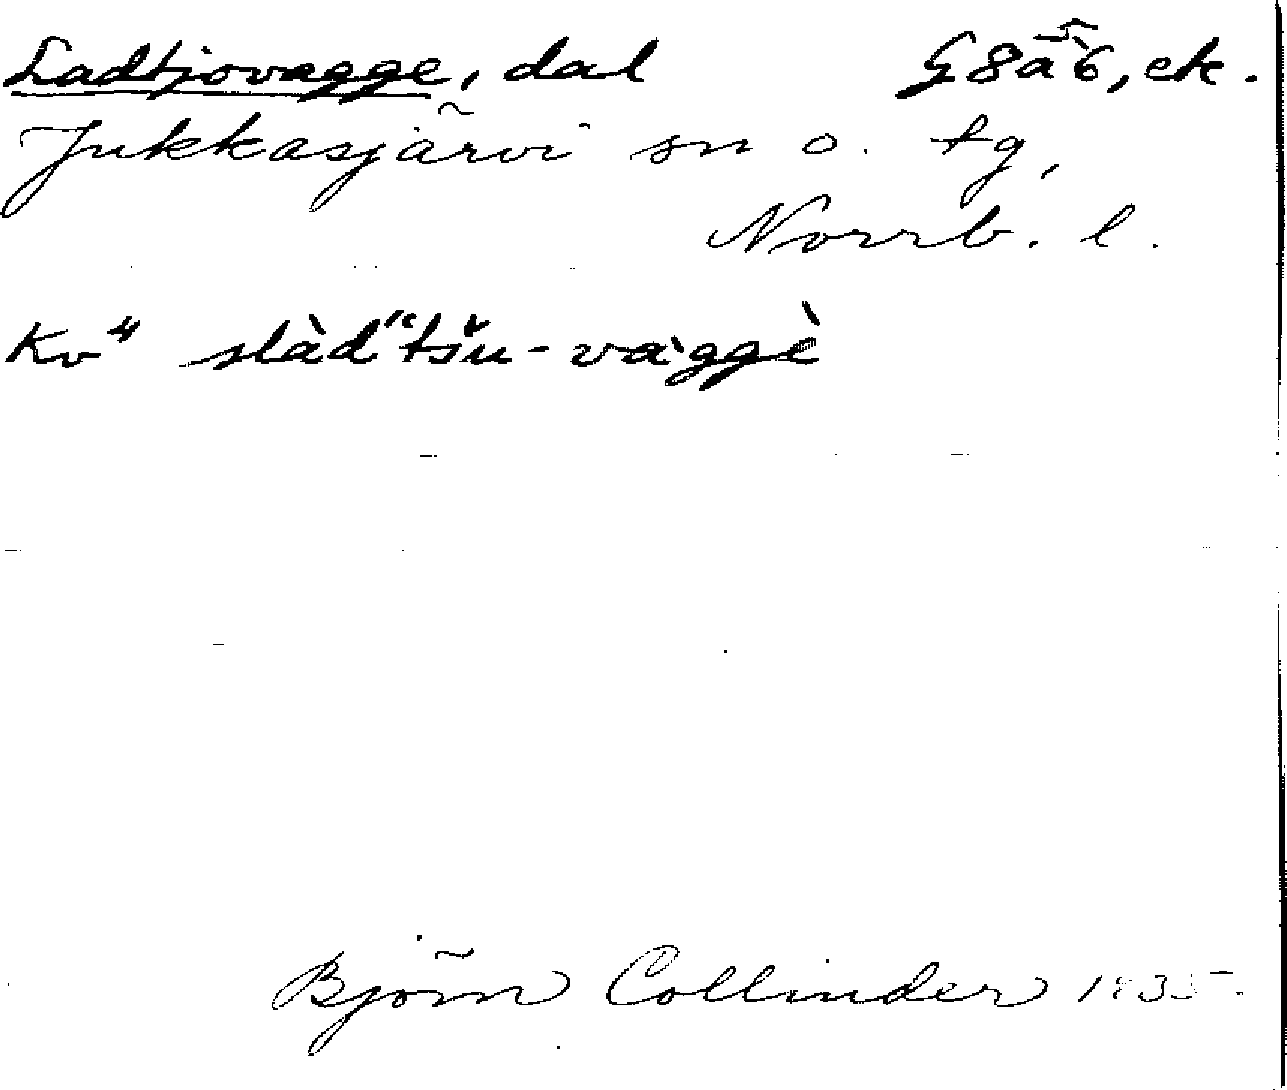 Ladtjovagge, dal G8ä6, ek.
Jukkasjärvi sn o. tg,
Norrb. l.
Kv⁴ slàd"tšu-vàggè
Björn Collinder 1935.